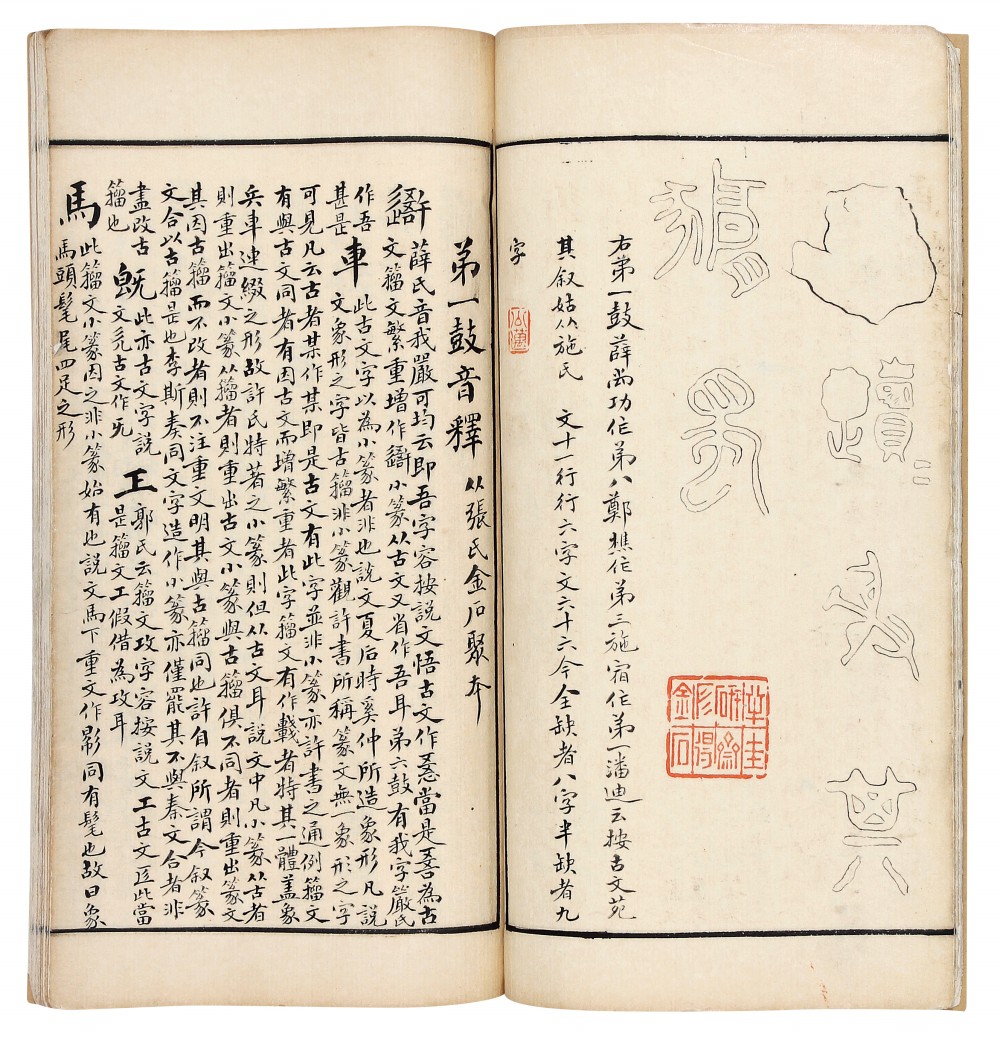 右苐一鼓薛尚功作苐八鄭樵作苐三施宿作苐一潘迪云按古文苑
其叙姑从施氏　文十一行行六字文六十六今全缺者八字半缺者九
字
苐一鼓音釋　从張氏金石聚本
䢩
薛氏音我嚴可均云即吾字容按說文悟古文作㥦當是為古
文籀文繁重增作䢩小篆从古文又省作吾耳弟六鼓有我字嚴氏
作吾
甚是
車
此古文字以為小篆者非也說文夏后時奚仲所造象形凡說
文象形之字皆古籀非小篆觀許書所稱篆文無一象形之字
可見凡云古者某作某即是古文有此字並非小篆亦許書之通例籀文
有與古文同者有因古文而增繁重者此字籀文有作者特其一體蓋象
兵車連綴之形故許氏特著之小篆則但从古文耳說文中凡小篆从古者
則重出籀文小篆从籀者則重出古文小篆與古籀俱不同者則重出篆文
其因古籀而不改者則不注重文明其與古籀同也許自叙所謂今叙篆
文合以古籀是也李斯奏同文字造作小篆亦僅罷其不與秦文合者非
盡改古
籀也
既
此亦古文字說
文旡古文作
工
郭氏云籀文攻字容按說文工古文此當
是籀文工假借為攻耳
馬
此籀文小篆因之非小篆始有也說文馬下重文作影同有髦也故曰象
馬頭髦尾四足之形